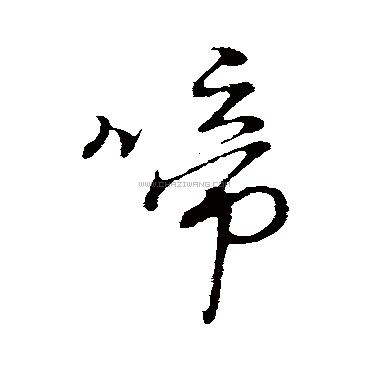 啼
WWW.CHAZIWANG.COM